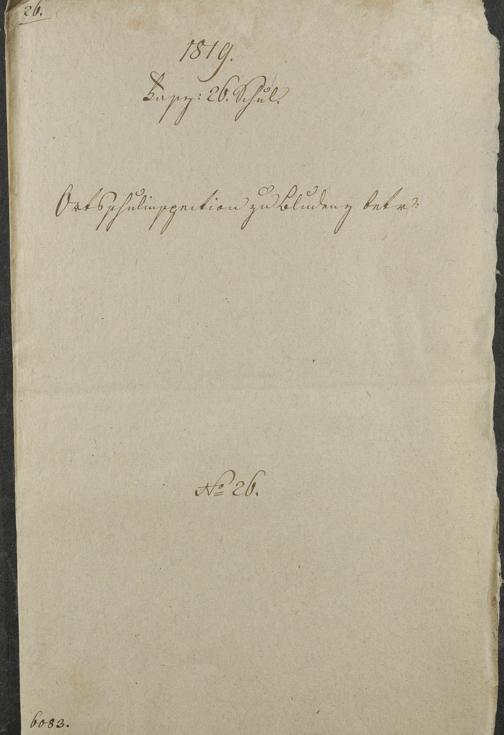 26.
1819.
Fasz: 26. Schul.
Ortsschulinspection zu Bludenz betr:
No 26.
6083.